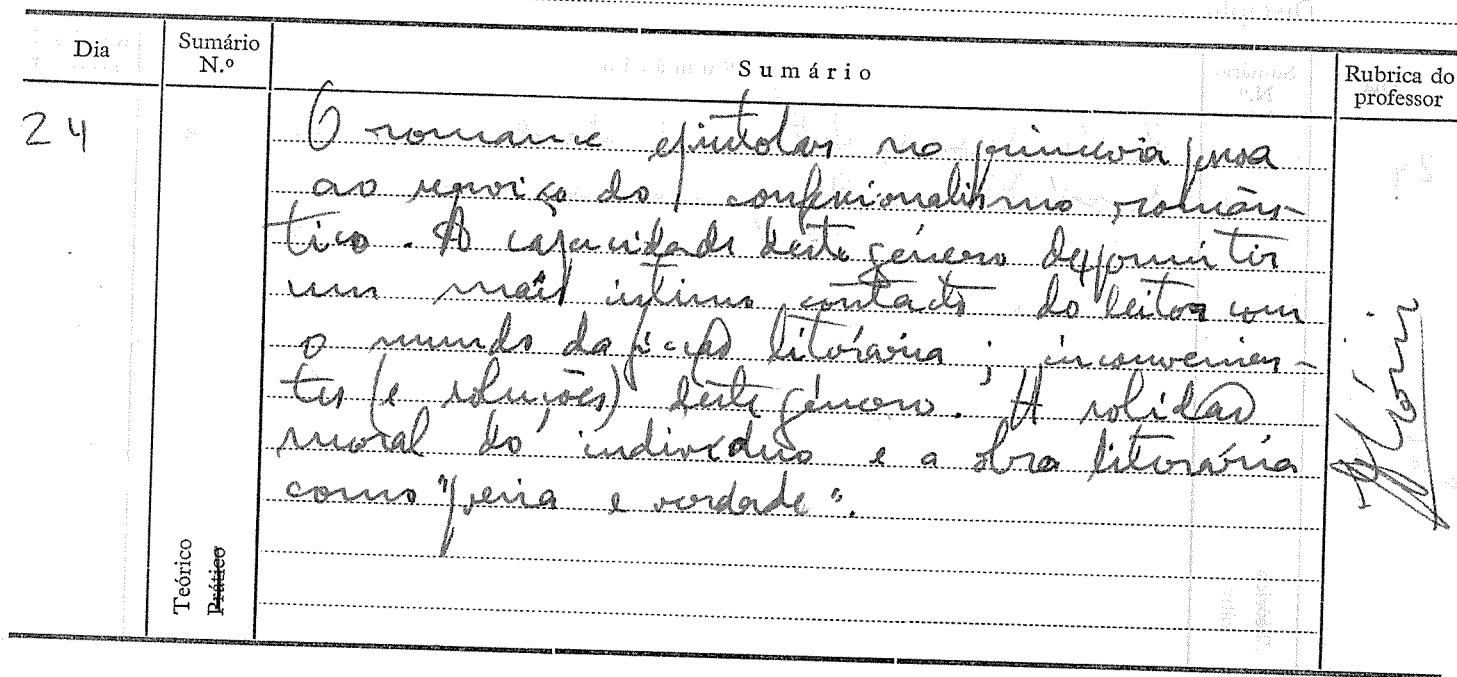 Dia
Sumário N.º
Sumário
Rubrica do professor
24
O romance epistolar na primeira pessoa
ao serviço do confessionalismo român-
tico. A capacidade deste género de permitir
um mais íntimo contacto do leitor com
o mundo da ficção literária; inconvenien-
tes (e soluções) deste género. A solidão
moral do indivíduo e a obra literária
como "poesia e verdade".
Teórico
Prático